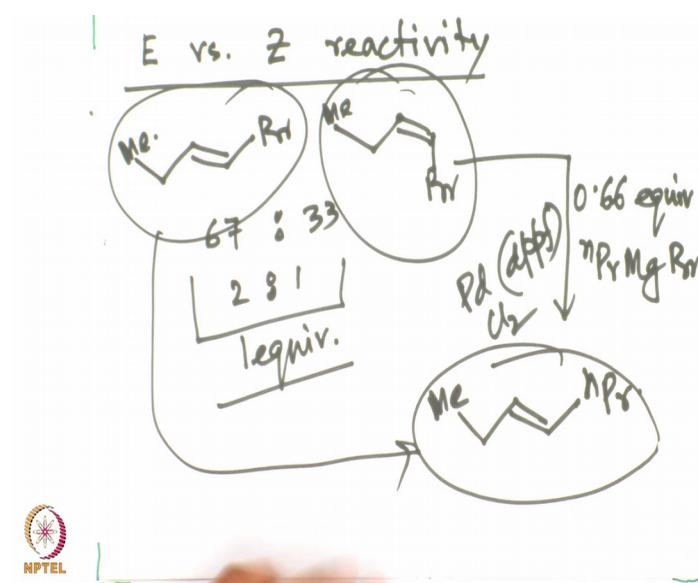 E vs. Z reactivity
Me Br
Me Br
67 : 33
2 : 1
1 equiv.
0.66 equiv
nPrMgBr
Pd(dppf)
Cl2
Me nPr
NPTEL